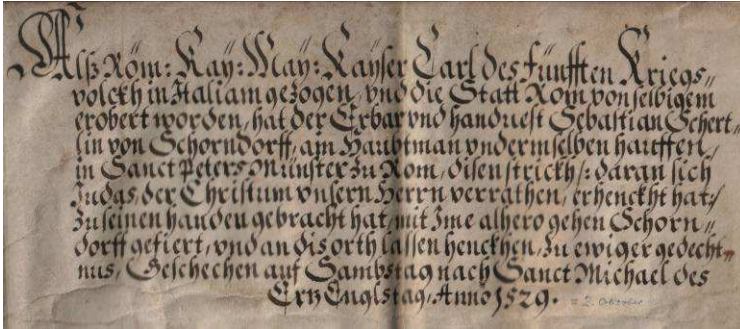 Alß Röm: Kay: May: Kayser Carl des Fünfften Kriegs„
volckh in Italiam gezogen, vnd die Statt Rom von selbigem
erobert worden, hat der Erbar vnd handuest Sebastian Schert„
lin von Schorndorff, am Haubtman vndermselben hauffen,
in Sanct Peters Münster zu Rom, disen strickh /: daran sich
Judas, der Christum vnsern Herrn verrathen, erhenckht hat :/
zu seinen handen gebracht hat, mit Ime alhero gehen Schorn„
dorff gefiert, vnd an dis orth lassen henckhen, zu ewiger gedecht„
nus, Geschechen auf Sambstag nach Sanct Michael des
Ertz Englstag, Anno 1529. = 2. Oktober